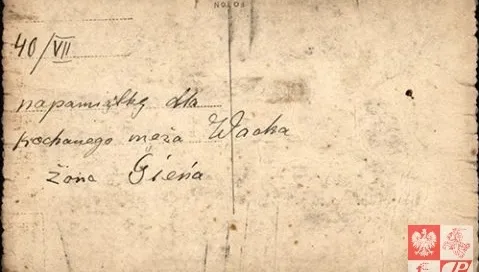 FOTON
40/VII
napamiątkę dla
kochanego męża Wacka
żona Gienia